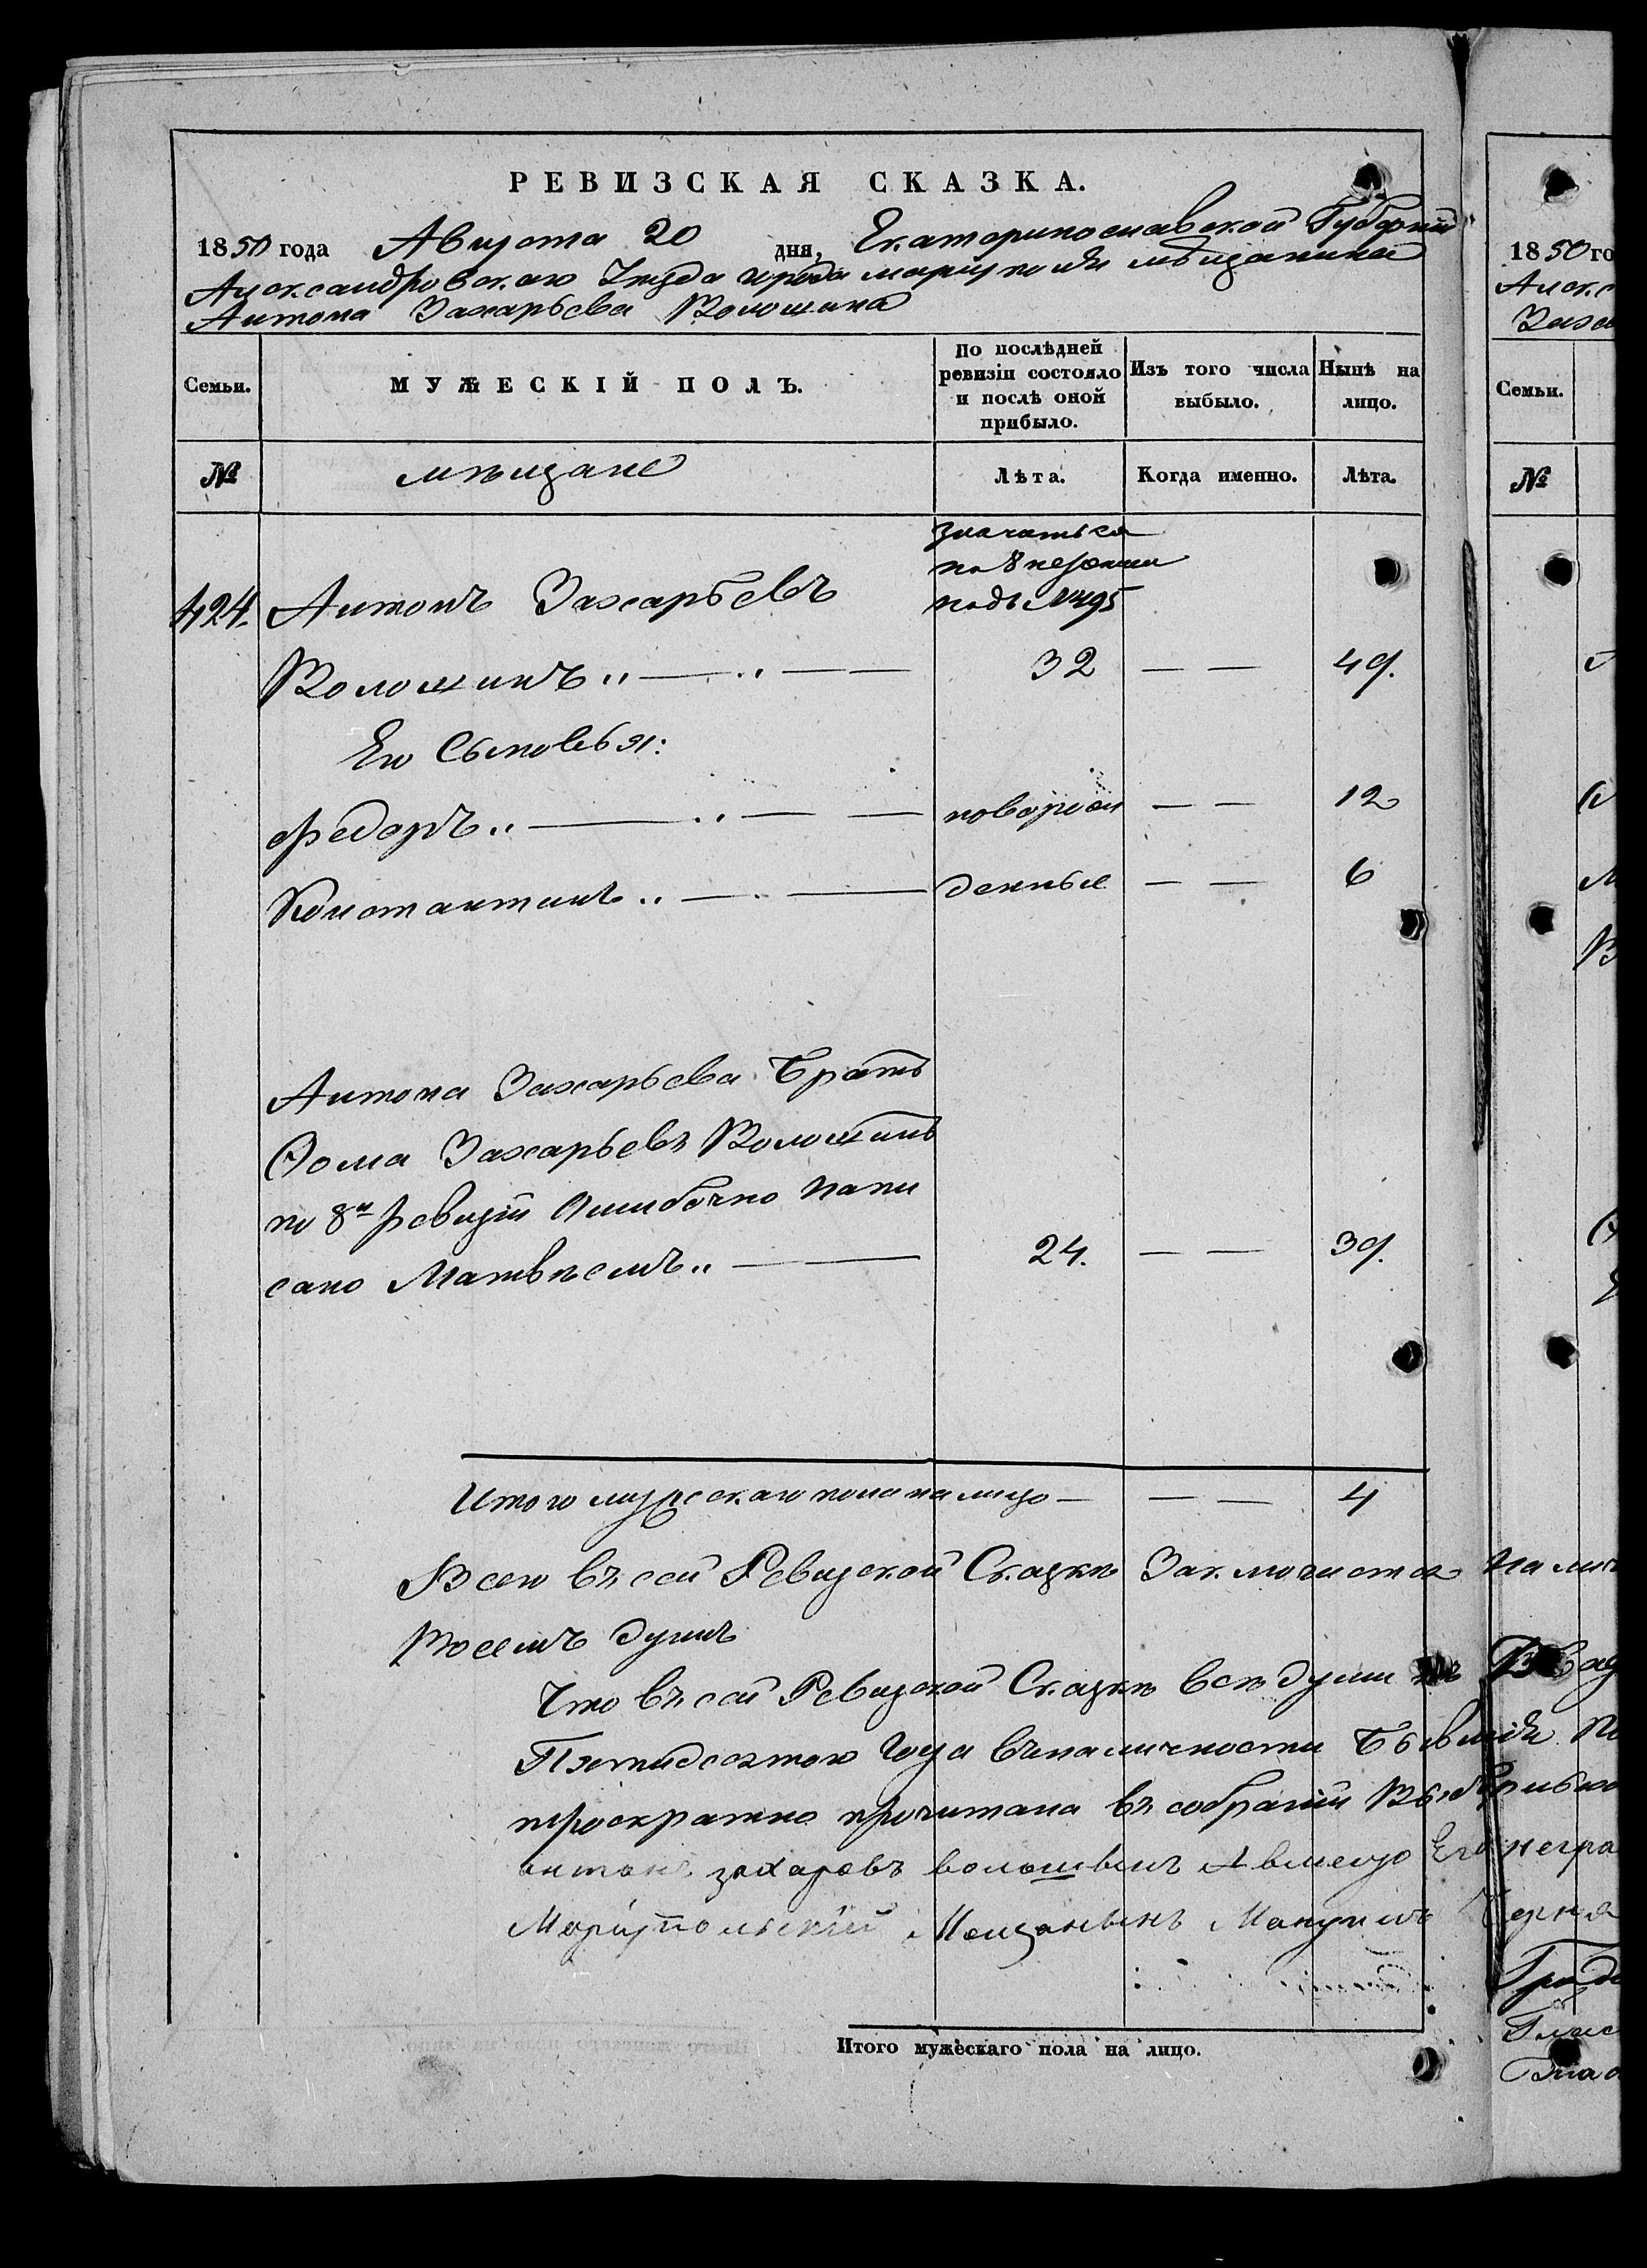 РЕВИЗСКАЯ СКАЗКА.
1850 года Августа 20 дня, Екатеринославской Губерніи
Александровскаго Уезда города Маріуполя мѣщанина
Антона Захарьева Волошина
Семьи. МУЖЕСКІЙ ПОЛЪ. По послѣдней ревизіи состояло и послѣ оной прибыло. Изъ того числа выбыло. Нынѣ на лицо.
№ мѣщане Лѣта. Когда именно. Лѣта.
значаться
по 8 ревизии
424. Антонъ Захарьевъ подъ № 495
Волошинъ 32 — — 49.
Его Сыновья:
Федоръ новорож — — 12
Константинъ денные — — 6
Антона Захарьева Братъ
Фома Захарьевъ Волошинъ
по 8й ревизіи Ошибочно напи
сано Матвѣемъ 24. — — 39.
Итого мужескаго пола на лицо — — — 4
Всего въ сей Ревизской Сказкѣ Заключается на лич
Восемъ душъ
Что въ сей Ревизской Сказкѣ всѣ души
Пятидесятого Года въ наличности Бывшія По
троекратно прочитана въ собраніи
антонъ захаровъ волошвинъ Авместо Его негра
Маріупольскій Мещанынъ Мануилъ Черня
Итого мужескаго пола на лицо.
1850 го
Алекс
Заха
Семьи.
№